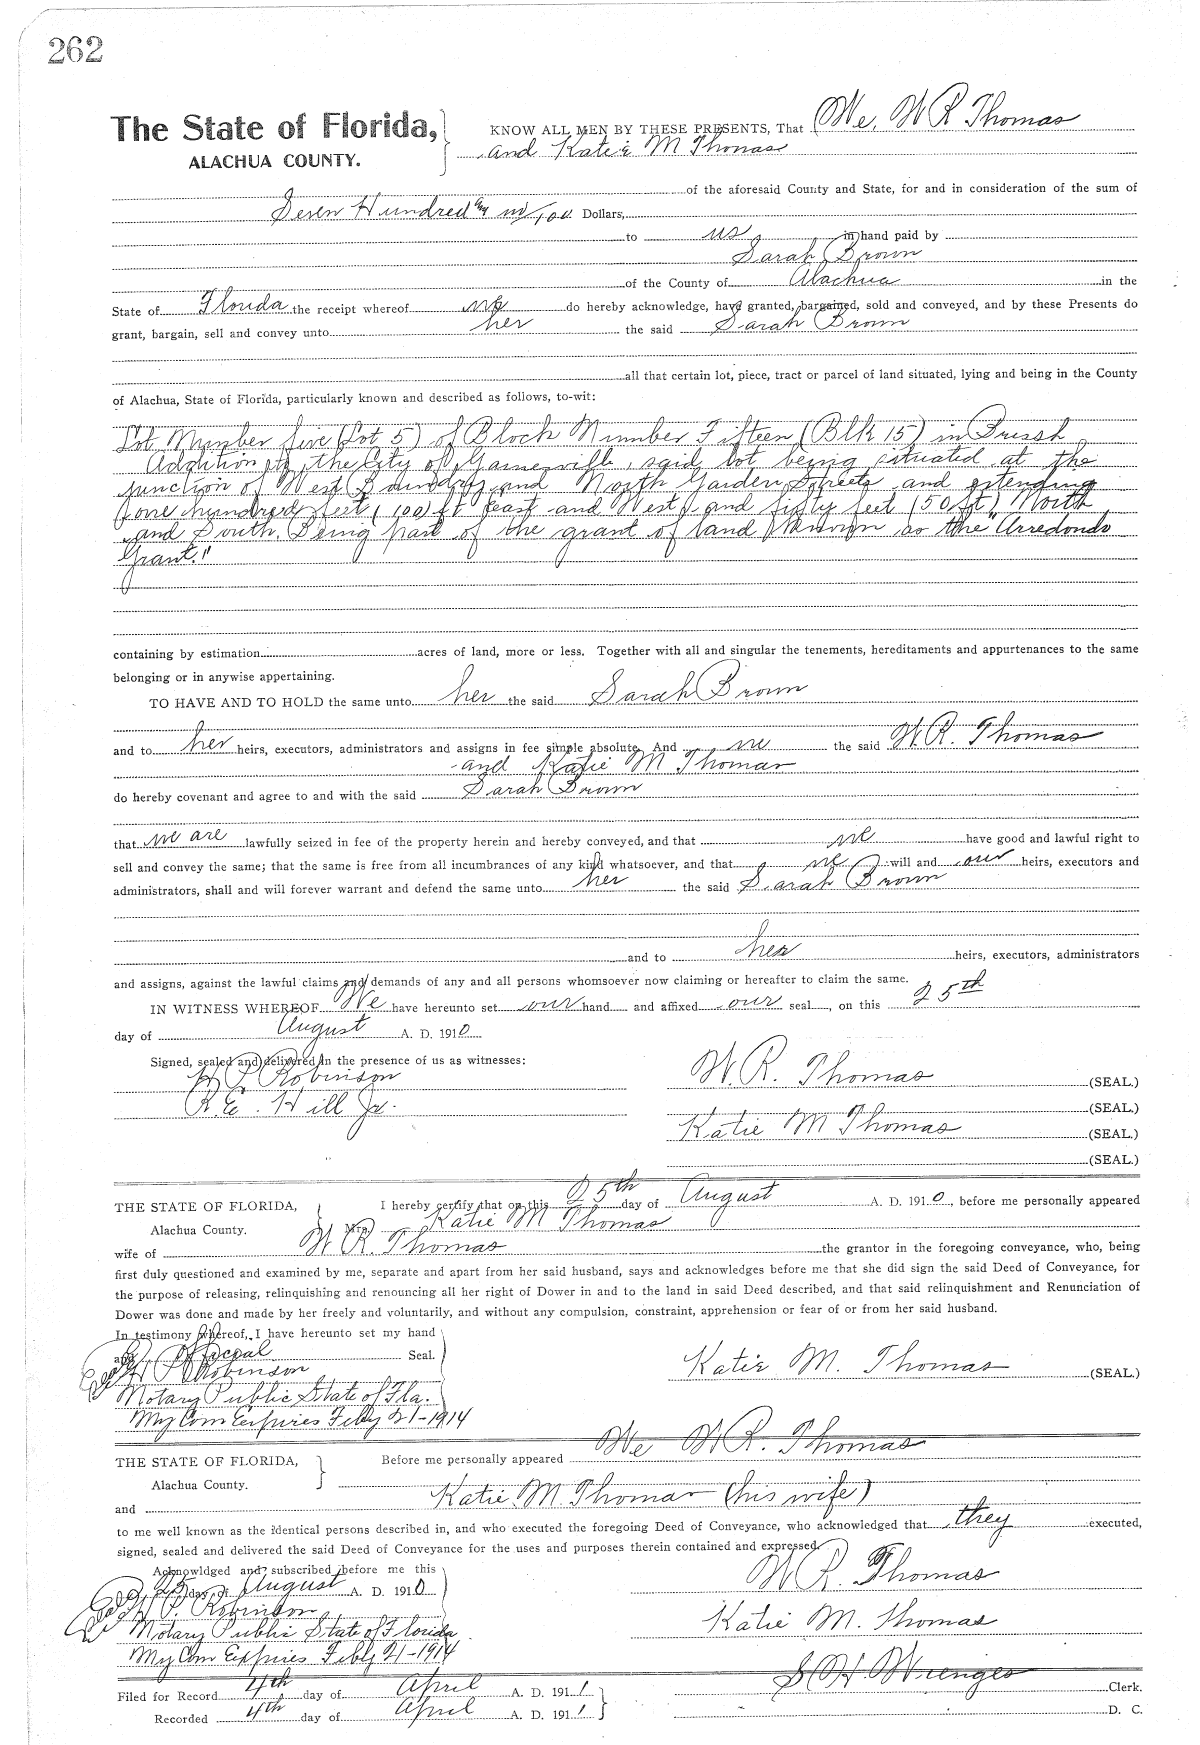 262
The State of Florida,
ALACHUA COUNTY.
KNOW ALL MEN BY THESE PRESENTS, That We, W R Thomas
and Katie M Thomas
of the aforesaid County and State, for and in consideration of the sum of
Seven Hundred and no/100 Dollars,
to us in hand paid by
Sarah Brown
of the County of Alachua in the
State of Florida the receipt whereof we do hereby acknowledge, have granted, bargained, sold and conveyed, and by these Presents do
grant, bargain, sell and convey unto her the said Sarah Brown
all that certain lot, piece, tract or parcel of land situated, lying and being in the County
of Alachua, State of Florida, particularly known and described as follows, to-wit:
Lot Number five (Lot 5) of Block Number Fifteen (Blk 15) in Brush
Addition to the City of Gainesville, said lot being situated at the
junction of West Boundry and North Garden Streets and extending
one hundred feet (100) ft East and West, and fifty feet (50 ft) North
and South, Being part of the grant of land known as the "Arredondo
Grant."
containing by estimation acres of land, more or less. Together with all and singular the tenements, hereditaments and appurtenances to the same
belonging or in anywise appertaining.
TO HAVE AND TO HOLD the same unto her the said Sarah Brown
and to her heirs, executors, administrators and assigns in fee simple absolute. And we the said W.R. Thomas
and Katie M Thomas
do hereby covenant and agree to and with the said Sarah Brown
that we are lawfully seized in fee of the property herein and hereby conveyed, and that we have good and lawful right to
sell and convey the same; that the same is free from all incumbrances of any kind whatsoever, and that we will and our heirs, executors and
administrators, shall and will forever warrant and defend the same unto her the said Sarah Brown
and to her heirs, executors, administrators
and assigns, against the lawful claims and demands of any and all persons whomsoever now claiming or hereafter to claim the same.
IN WITNESS WHEREOF We have hereunto set our hand and affixed our seal, on this 25th
day of August A. D. 1910
Signed, sealed and delivered in the presence of us as witnesses:
H P Robinson
R.E. Hill Jr.
W.R. Thomas (SEAL.)
(SEAL.)
Katie M Thomas (SEAL.)
(SEAL.)
THE STATE OF FLORIDA,
Alachua County.
I hereby certify that on this 25th day of August A. D. 1910, before me personally appeared
Mrs. Katie M Thomas
wife of W R. Thomas the grantor in the foregoing conveyance, who, being
first duly questioned and examined by me, separate and apart from her said husband, says and acknowledges before me that she did sign the said Deed of Conveyance, for
the purpose of releasing, relinquishing and renouncing all her right of Dower in and to the land in said Deed described, and that said relinquishment and Renunciation of
Dower was done and made by her freely and voluntarily, and without any compulsion, constraint, apprehension or fear of or from her said husband.
In testimony whereof, I have hereunto set my hand
and official Seal.
H P Robinson
Notary Public State of Fla.
My Com Expires Feby 21-1914
Katie M. Thomas (SEAL.)
THE STATE OF FLORIDA,
Alachua County.
Before me personally appeared We W R. Thomas
and Katie M. Thomas (his wife)
to me well known as the identical persons described in, and who executed the foregoing Deed of Conveyance, who acknowledged that they executed,
signed, sealed and delivered the said Deed of Conveyance for the uses and purposes therein contained and expressed.
Acknowldged and subscribed before me this
25 day of August A. D. 1910
H P. Robinson
Notary Public State of Florida
My Com Expires Feby 21-1914
W R. Thomas
Katie M. Thomas
Filed for Record 4th day of April A. D. 1911
Recorded 4th day of April A. D. 1911
S H Wienges Clerk.
D. C.